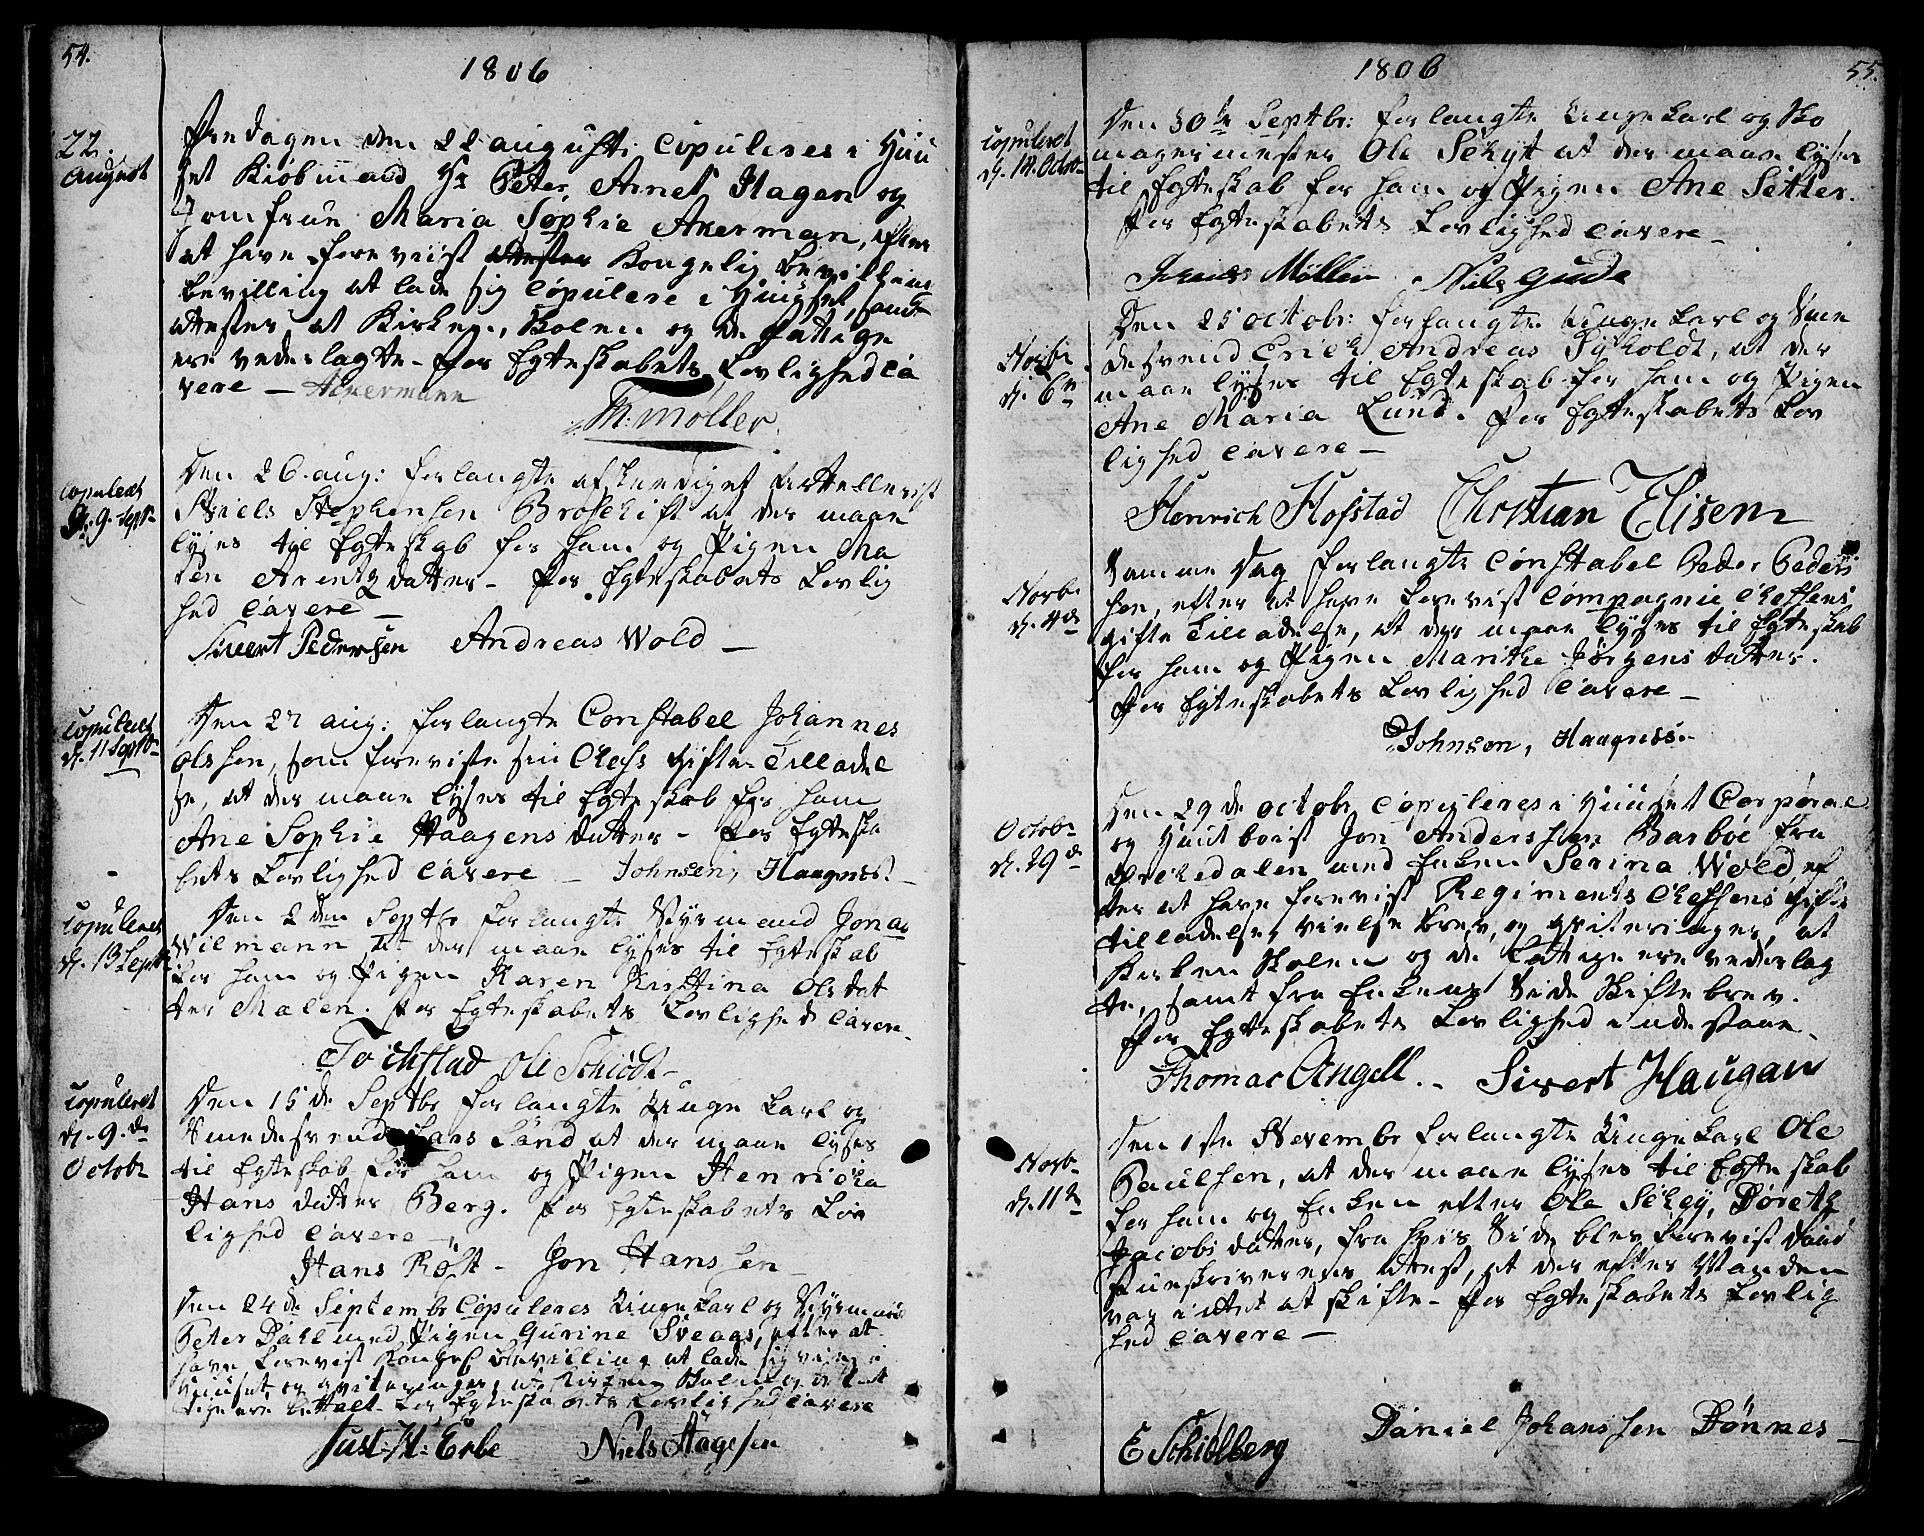 54.
1806
22.
August
Fredagen den 22 augusti Copuleres i Huu
set Kiøbmand Hr Peter Arnet Hagen og
Jomfrue Maria Sophie Akerman, efter
at have foreviist Kongelig
bevilling at lade sig Copulere i Huuset, samt
attester at Kirken, Skolen og de fattige
ere vederlagte - For Egteskabets Lovlighed ca
vere - Akermann
Th: Møller
Copuleret
d. 9. Septbr
Den 26. aug: forlangte afskediget
Niels Stephensen Broschift at der maae
lyses til Egteskab for ham og Pigen Ma
ren Arentzdatter - For Egteskabets Lovlig
hed cavere -
Sivert Pedersen Andreas Wold -
Copuleret
d. 11 Septbr
Den 27 aug: forlangte Constabel Johannes
Olssen, som foreviste sin Chefs Gifte Tilladel
se, at der maae lyses til Egteskab for ham
Ane Sophie Haagensdatter - For Egteska
bets Lovlighed cavere - Johnsen, Haagness.
Copuleret
d. 13 Septbr
Den 2den Septbr forlangte Styrmand Jonas
Wilmann at der maae lyses til Egteskab
for ham og Pigen Karen Kistina Olsdat
ter Malen. For Egteskabets Lovlighed cavere
Tochstad Ole Schiødt -
Copuleret
d. 9. de
Octobr
Den 15 de Septbr forlangte Unge Karl og
Smedesvend Lars Sand at der maae lyses
til Egteskab for ham og Pigen Henricha
Hans datter Berg. For Egteskabets Lov
lighed cavere -
Hans Røst - Jon Hanssen
Den 24 de Septembr Copuleres Unge Karl og Styrmand
Peter Dahl med Pigen Gurine Sveags, efter at
have forevist Kongel bevilling at lade sig vie i
Huuset og qviteringer, at Kirken Skolen og de fat
tige ere betalt - For Egteskabets Lovlighed cavere
Just: H: Erbe Niels Hagesen
1806
55.
Copuleret
d. 14. Octbr
Den 30te Septbr: forlangte Unge Karl og Sko
magermester Ole Schytt at der maae lyses
til Egteskab for ham og Pigen Ane Setter.
For Egteskabets Lovlighed cavere -
Møller Nils Gude
Novbr
d. 6te
Den 25 octobr: forlangte Unge Karl og Sme
desvend Erich Andreas Sÿholdt, at der
maae lyses til Egteskab for ham og Pigen
Ane Maria Lund. For Egteskabets Lov
lighed cavere -
Henrich Hofstad Christian Elisen
Novbr
d. 4de
Samme Dag forlangte Constabel Peder Peder
sen, efter at have forevist Compagnie Cheffens
Gifte Tilladelse, at der maae lyses til Egteskab
for ham og Pigen Marithe Jørgens datter.
For Egteskabets Lovlighed cavere -
Johnsen, Haagness. -
Octobr
d. 29 de
Den 29 de octobr Copuleres i Huuset Corporal
og Jon Anderssen Barboe fra
Orckedalen med Enken Serina Wold ef
ter at have forevist Regiments Cheffens Gifte
tilladelse, vielse brev, og qviteringer, at
Kirken Skolen og de fattige ere vederlag
te, samt fra Enkens Side Skiftebrev.
For Egteskabets Lovlighed indestaae
Thomas Angell. - Sivert Haugan
Novbr
d. 11te
Den 1ste Novembr forlangte Unge Karl Ole
Paulsen, at der maae lyses til Egteskab
for ham og Enken efter Ole Schey, Doreth
Jacobs datter, fra hvis Side blev forevist
skriverens attest, at der efter Manden
var intet at skifte - For Egteskabets Lovlig
hed cavere -
E Schiølberg Daniel Johanssen Dønnes -